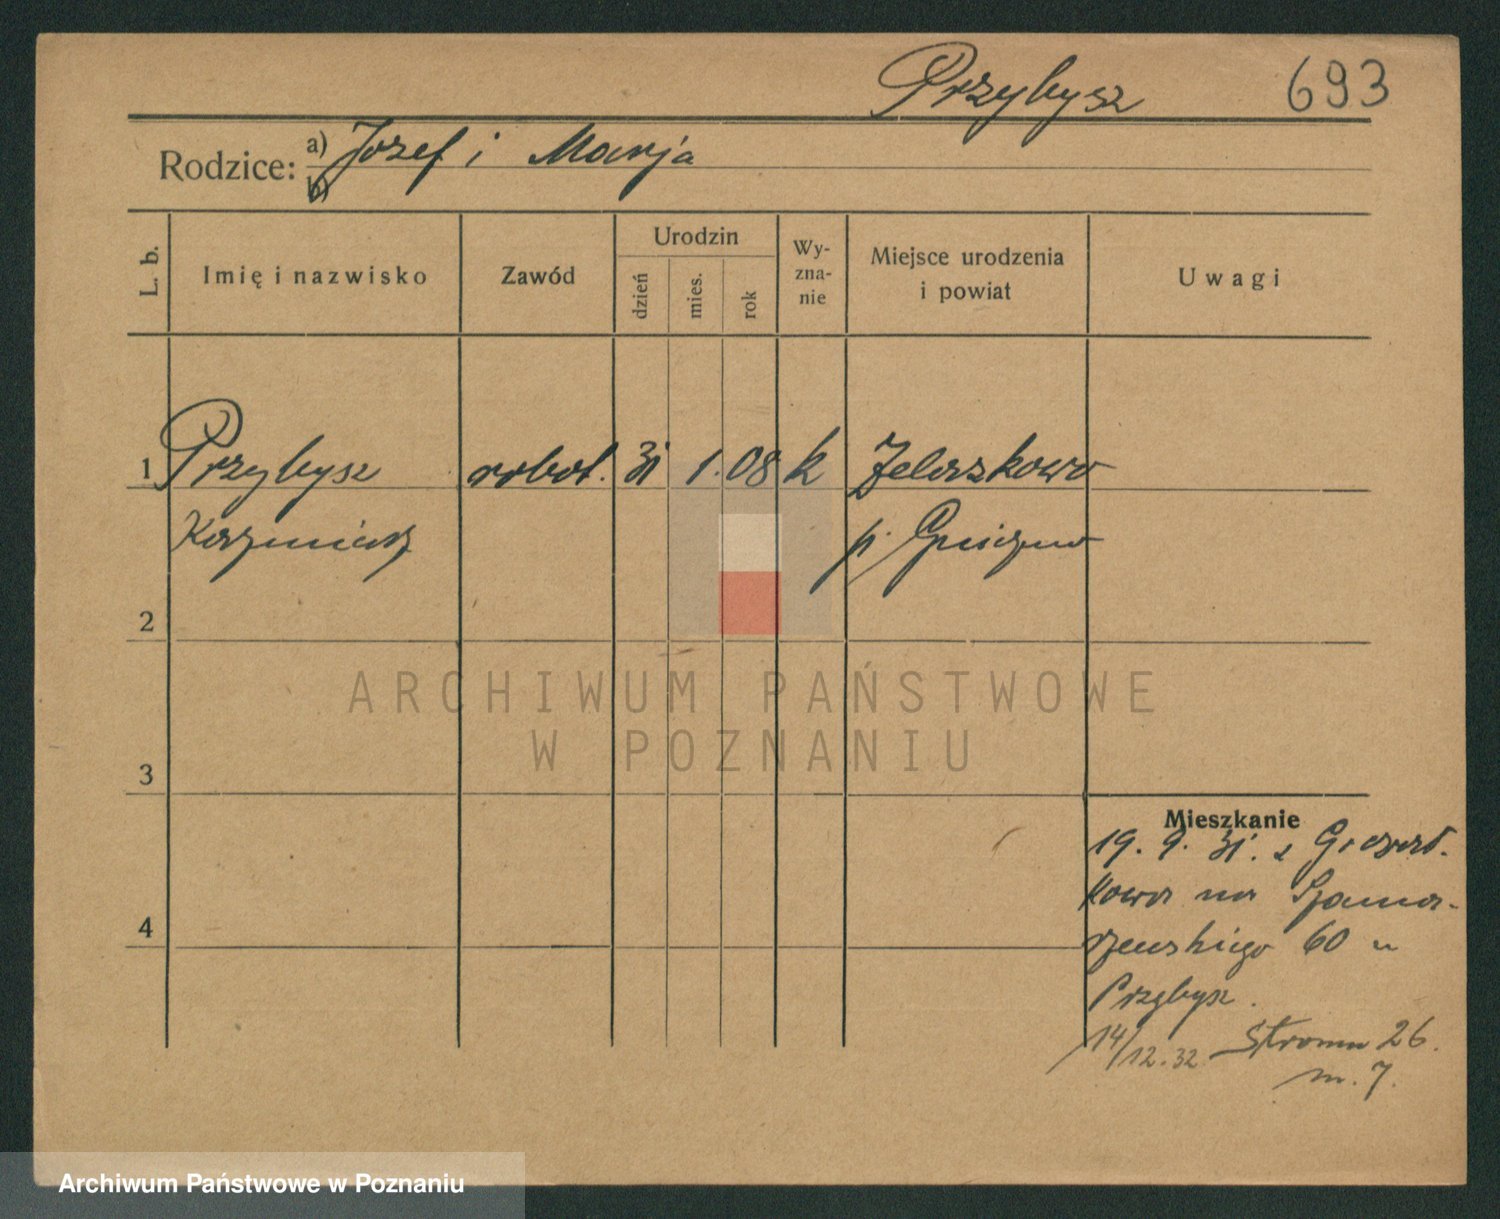 Przybysz 693
Rodzice: a) Józef i Marja
b)
L. b.
Imię i nazwisko
Zawód
Urodzin
dzień
mies.
rok
Wy-
zna-
nie
Miejsce urodzenia
i powiat
Uwagi
1 Przybysz robot. 31 1. 08 k Żelazkowo
Kazimierz p. Gniezno
2
3
4
ARCHIWUM PAŃSTWOWE
W POZNANIU
Mieszkanie
19. 9. 31. z
kowa na Szama-
rzewskiego 60 u
Przybysz.
14/12.32 Stroma 26.
m. 7.
Archiwum Państwowe w Poznaniu